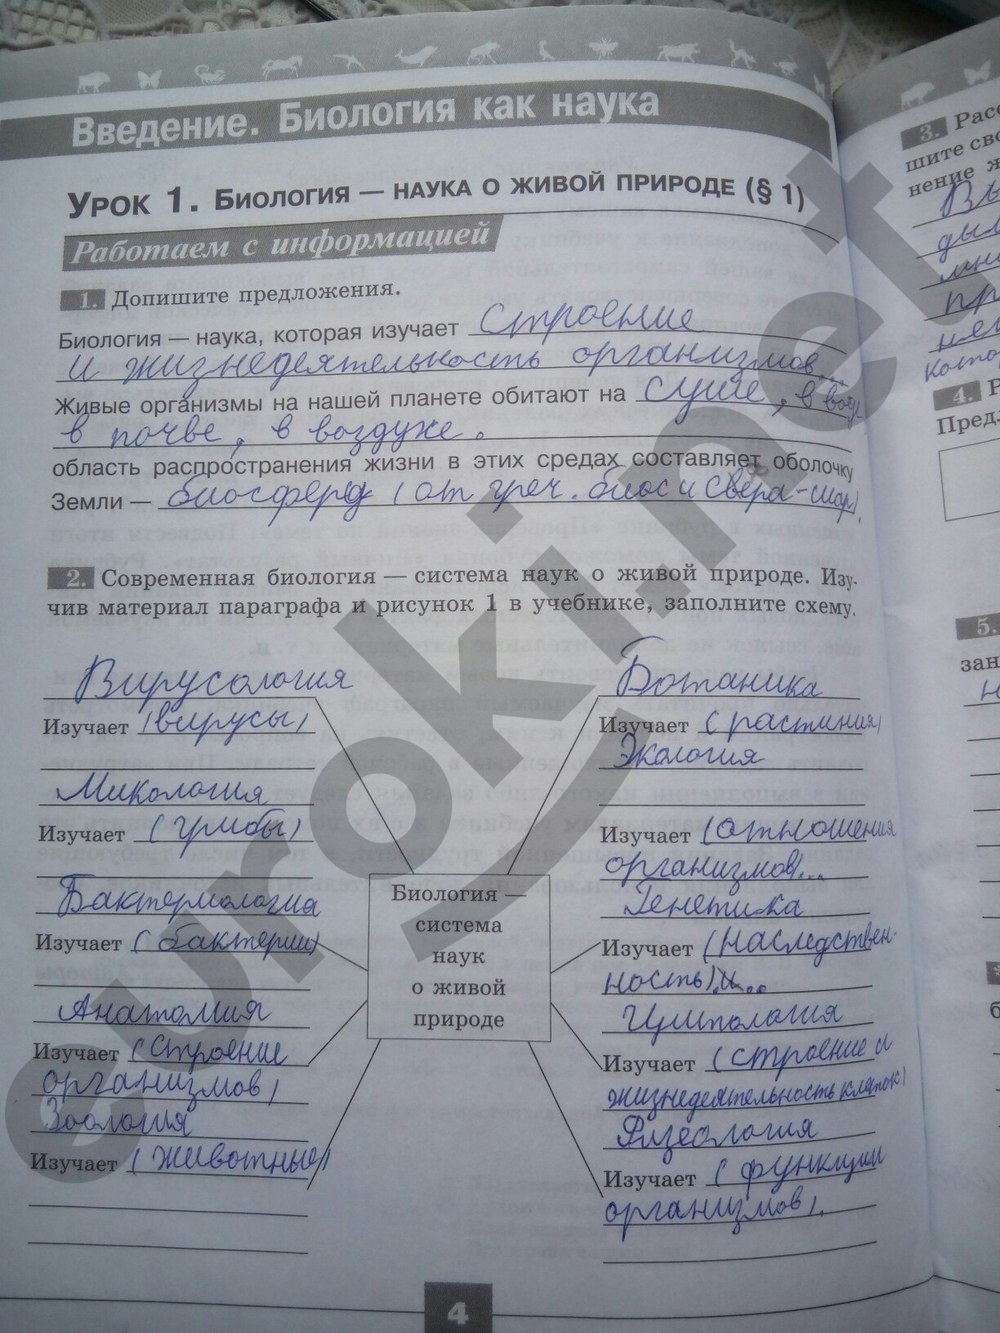 Введение. Биология как наука
Урок 1. Биология — наука о живой природе (§ 1)
Работаем с информацией
1. Допишите предложения.
Биология — наука, которая изучает строение
и жизнедеятельность организмов...
Живые организмы на нашей планете обитают на суше, в воде,
в почве, в воздухе.
область распространения жизни в этих средах составляет оболочку
Земли — биосферд (от греч. биос и свера-шар).
2. Современная биология — система наук о живой природе. Изу-
чив материал параграфа и рисунок 1 в учебнике, заполните схему.
Вирусология
Изучает (вирусы)
Микология
Изучает (грибы)
Бактериология
Изучает (бактерии)
Анатомия
Изучает (строение
организмов)
Зоология
Изучает (животные)
Биология —
система
наук
о живой
природе
Ботаника
Изучает (растиния)
Экология
Изучает (отношения
организмов)...
Генетика
Изучает (наследствен-
ность)и...
Цитология
Изучает (строение и
жизнедеятельность клеток)
Физеология
Изучает (функции
организмов).
4
3. Расс
шите сво
нение ж
4.
Пред
5.
зан
euroki.net